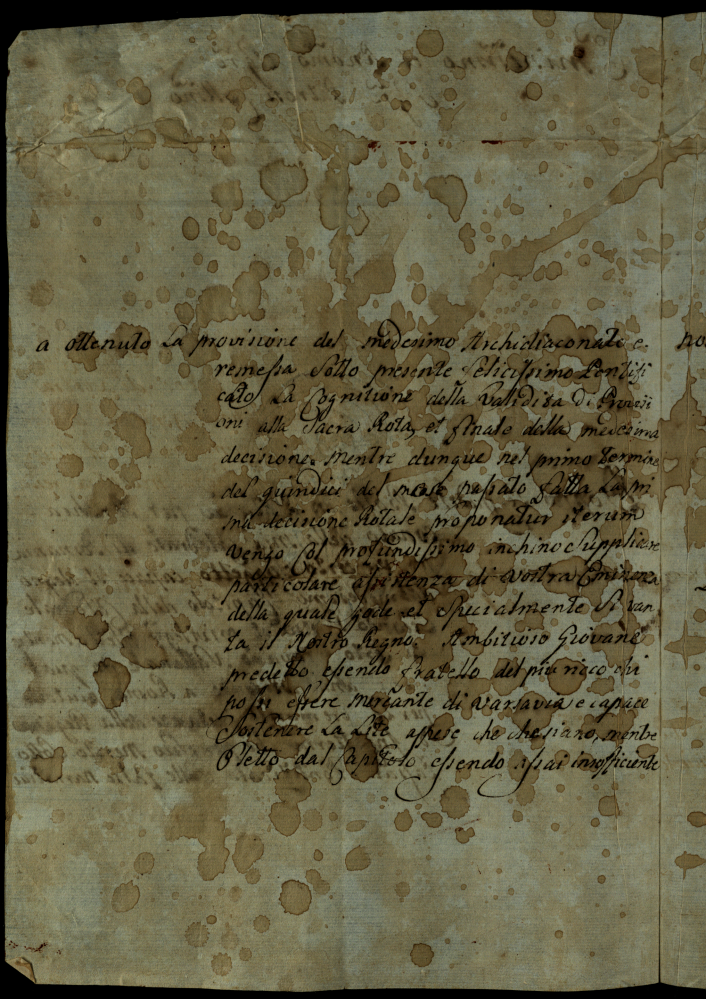 a ottenuto La provisione del medesimo Archidiaconato e
remessa Sotto presente felicissimo Pontifi
cato La Cognitione della validita di Provisi
oni alla Sacra Rota, et finale della medesima
decisione. Mentre dunque nel primo termine
del quindici del mese passato fatta La pri
ma decisione Rotale proponatur iterum
vengo Col profundissimo inchino Supplicare
particolare assistenza di Vostra Eminenza
della quale gode et Specialmente Si van
ta il Nostro Regno. Ambitioso Giovane
predetto essendo fratello del piu ricco chi
possi essere mercante di Varsavia e capace
Sostenere La Lite spese che che siano, mentre
Eletto dal Capitolo essendo assai insofficiente